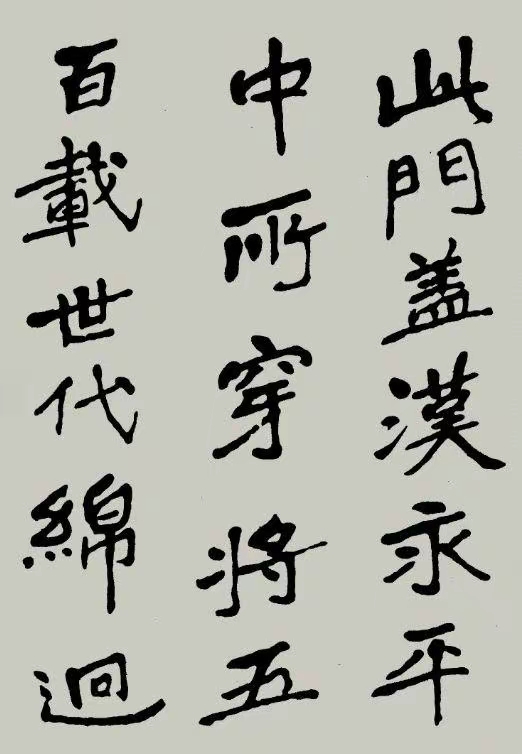 此門蓋漢永平
中所穿將五
百載世代綿迴